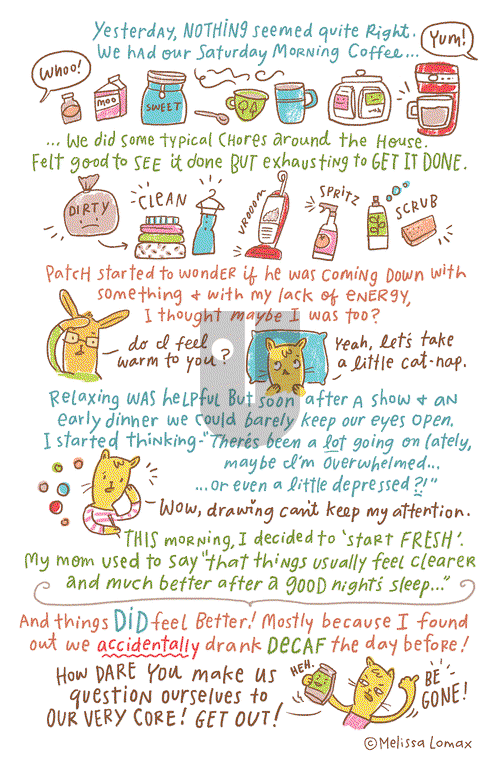 Yesterday, NOTHING seemed quite Right.
We had our Saturday Morning Coffee...
Yum!
Whoo!
MOO
SWEET
... We did some typical Chores around the House.
Felt good to SEE it done BUT exhausting to GET IT DONE.
DIRTY
CLEAN
VROOOM
SPRITZ
SCRUB
Patch started to wonder if he was coming down with
something + with my lack of ENERGY,
I thought maybe I was too?
do I feel
warm to you?
Yeah, let's take
a little cat-nap.
Relaxing was helpful But soon after a show + an
early dinner we could barely keep our eyes open.
I started thinking-"There's been a lot going on lately,
maybe I'm overwhelmed...
...or even a little depressed?!"
Wow, drawing can't keep my attention.
THIS morning, I decided to 'start FRESH'.
My mom used to say "that things usually feel clearer
and much better after a good night's sleep..."
And things DID feel Better! Mostly because I found
out we accidentally drank DECAF the day before!
How DARE YOU make us
question ourselves to
OUR VERY CORE! GET OUT!
HEH.
BE
GONE!
©Melissa Lomax